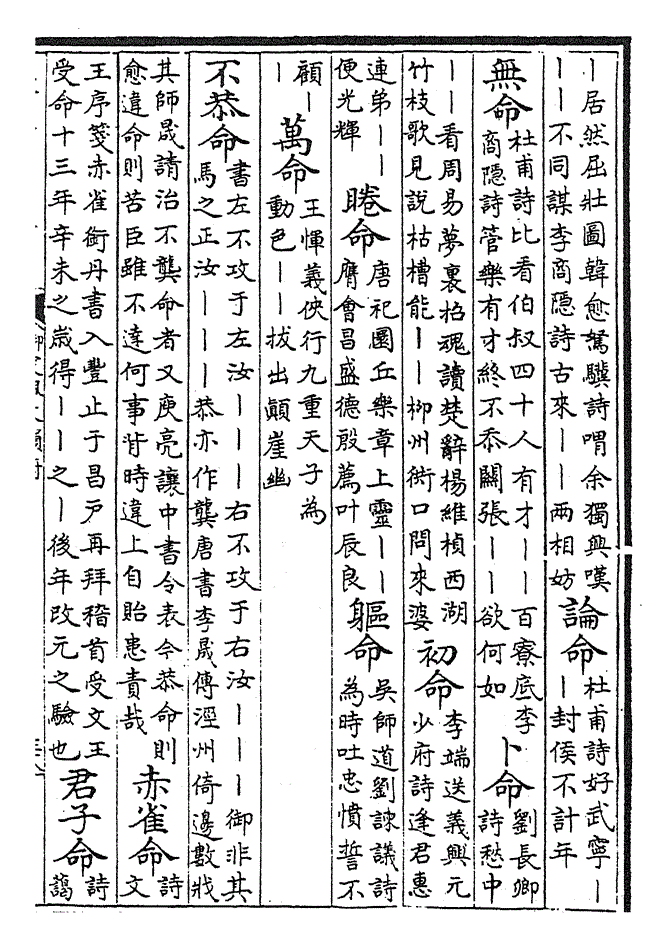 ｜居然屈壯圖韓愈駑驥詩喟余獨興嘆
｜｜不同謀李商隱詩古來｜｜兩相妨
論命
杜甫詩好武寧｜
｜封侯不計年
無命
杜甫詩比看伯叔四十人有才｜｜百寮底李
商隱詩管樂有才終不忝關張｜｜欲何如
卜命
劉長卿
詩愁中
｜｜看周易夢裏招魂讀楚辭楊維楨西湖
竹枝歌見說枯槽能｜｜柳州衖口問來婆
初命
李端送義興元
少府詩逢君惠
連弟｜｜
便光輝
睠命
唐祀圜丘樂章上靈｜｜
膺會昌盛德殷薦叶辰良
軀命
吳師道劉諫議詩
為時吐忠憤誓不
顧｜
｜
萬命
王惲義俠行九重天子為
動色｜｜拔出顛崖幽
不恭命
書左不攻于左汝｜｜｜右不攻于右汝｜｜｜御非其
馬之正汝｜｜｜恭亦作龔唐書李晟傳涇州倚邊數戕
其師晟請治不龔命者又庾亮讓中書令表今恭命則
愈違命則苦臣雖不達何事背時違上自貽患責哉
赤雀命
詩
文
王序箋赤雀銜丹書入豐止于昌戶再拜稽首受文王
受命十三年辛未之歲得｜｜之｜後年改元之驗也
君子命
詩
藹